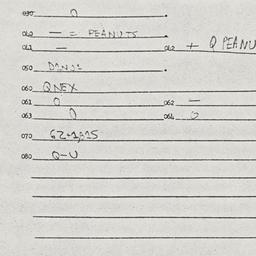 030 0
040 — = PEANUTS
041 — 042 + Q PEANU
050
060 QNEX
061 0 062 —
063 0 064 0
070
080 Q-U